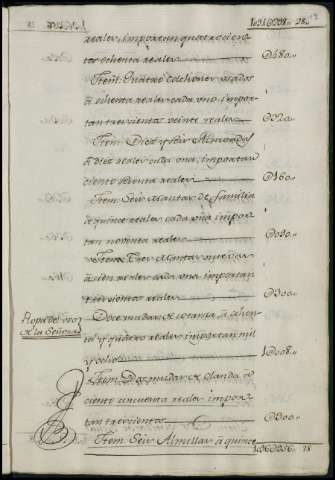 reales, importan quatrocien
tos ochenta reales 480
Ittem. Quatro Colchones usados
a ochenta reales cada uno impor
tan trescientos veinte reales 320
Ittem. Diez y seis Almoadas
a diez reales cada una, importan
ciento sesenta reales 160
Ittem. Seis Mantas de familia
a quince reales cada una impor
tan noventa reales 090
Ittem. Tres Mantas nuevas
a cien reales cada una importan
trescientos reales 300
Ropa del uso
de la Señora
Doce mudas de cotanza, a ochen
ta y quatro reales importan mil
y ocho 1008
Ittem. Dos mudas de olanda, a
ciento cinquenta reales impor
tan trescientos 300
Ittem. Seis Almillas, a quince